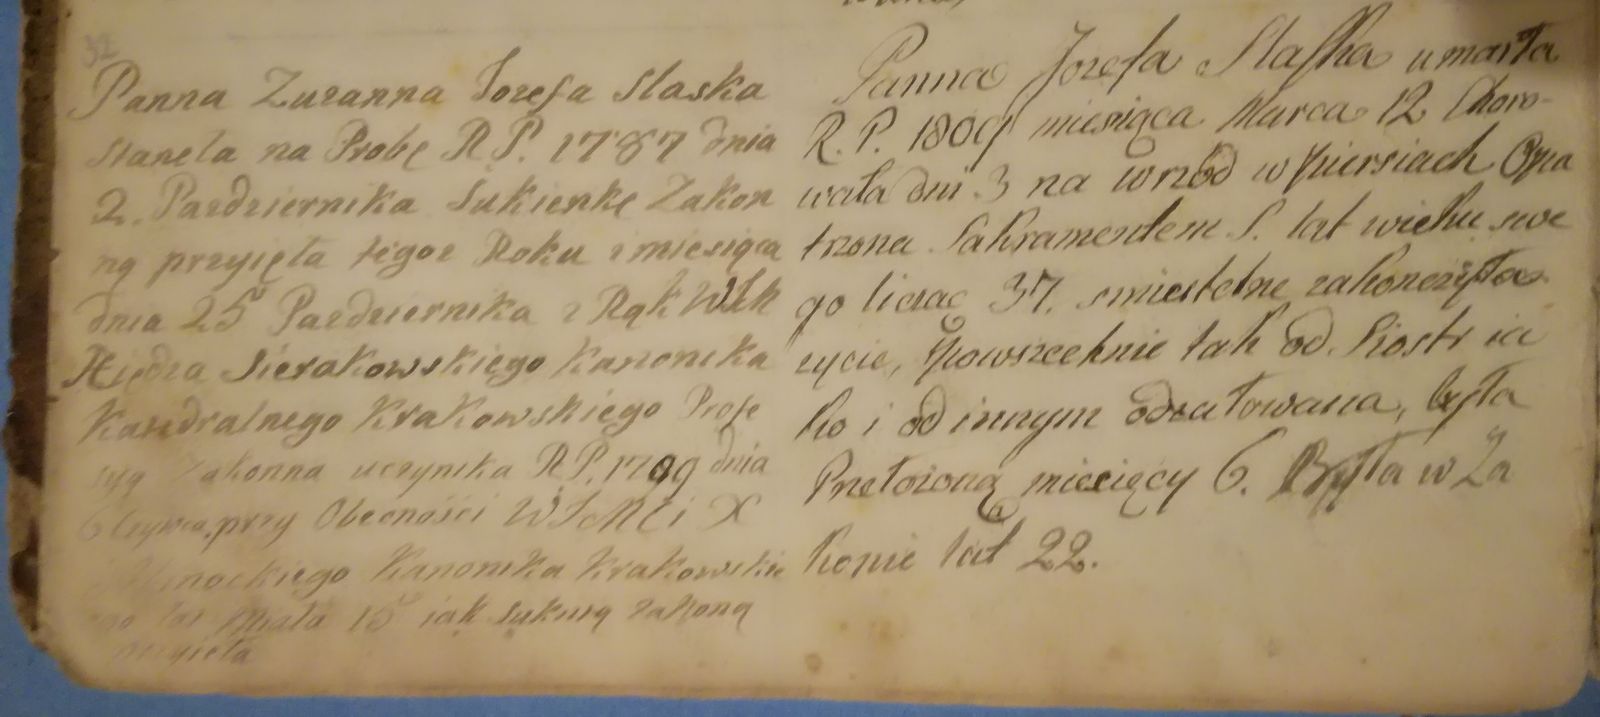 32
Panna Zuzanna Jozefa Slaska
stanęła na Probę R P. 1787 dnia
2. Pazdziernika Sukienkę Zakon
ną przyięła tegoz Roku i miesiąca
dnia 25 Pazdziernika z Rąk
Xiędza Sierakowskiego Kanonika
Katedralnego Krakowskiego Profe
syą Zakonna uczyniła R P. 1789 dnia
6 przy Obecności X
Kanonika Krakowskie
go lat miała 15 iak suknią zakoną
przyięła
Panna Jozefa Slaska umarła
R. P. 1809 miesiąca Marca 12 Choro-
wała dni 3 na wrzód w piersiach Opa
trzona Sakramentem S. lat wieku swe
go licząc 37. smiertelne zakonczyła
zycie, powszechnie tak od Siostr ia
ko i od innym odzałowana, była
Przełozoną miesięcy 6. Była w Za
konie lat 22.